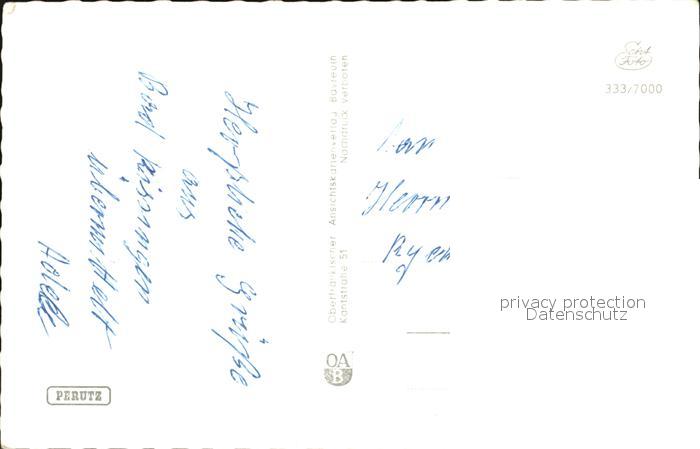 Herzliche Grüße
aus
Bad Kissingen
übermittelt
Oberfränkischer Ansichtskartenverlag Bayreuth
Kantstraße 51 Nachdruck verboten
OA
B
PERUTZ
Echt
Foto
333/7000
Herrn
privacy protection
Datenschutz